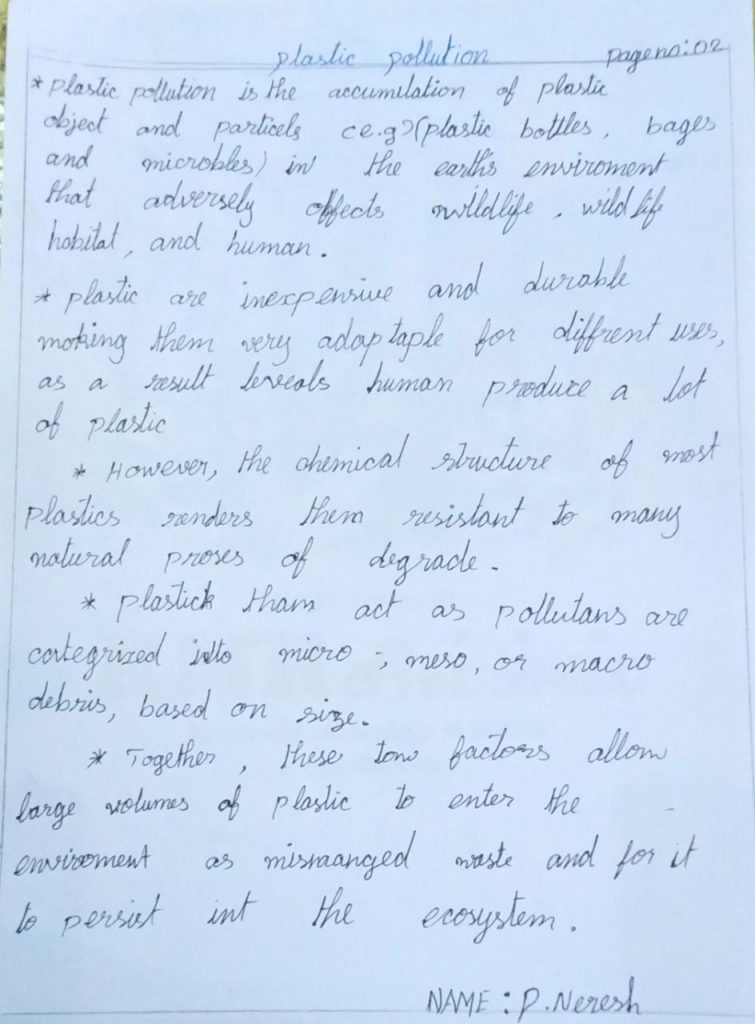 plastic pollution pageno:02
* plastic pollution is the accumulation of plastic
object and particels ce.g)(plastic bottles, bages
and microbles) in the earth's enviroment
that adversely offects wildlife, wild life
hobitat, and human.
* plastic are inexpensive and durable
making them very adaptaple for diffrent uses,
as a result leveals human produce a lot
of plastic
* However, the chemical structure of most
plastics renders them resistant to many
natural proses of degrade.
* plastick tham act as pollutans are
categrized into micro -, meso, or macro
debris, based on size.
* Together, these tow factors allow
large volumes of plastic to enter the
enviroment as mismaanged waste and for it
to persist int the ecosystem.
NAME : P. Neresh